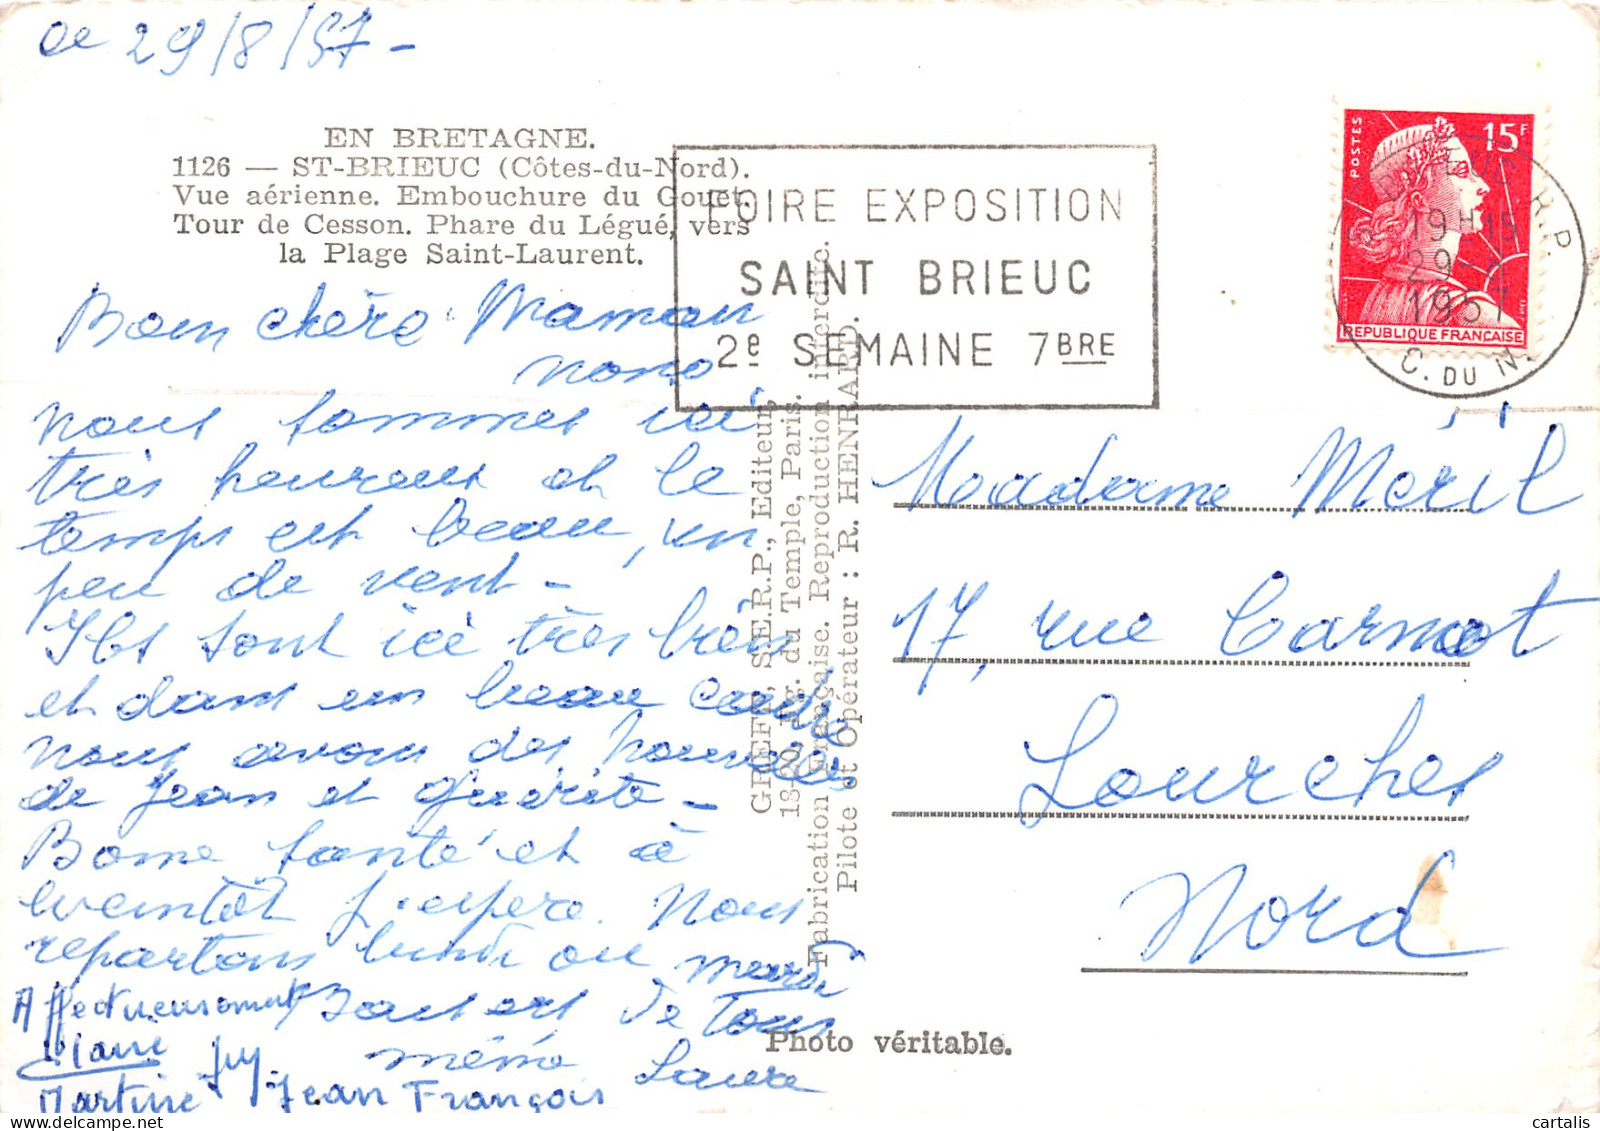 Ce 29/8/57-
EN BRETAGNE.
1126 — ST-BRIEUC (Côtes-du-Nord).
Vue aérienne. Embouchure du Gouet.
Tour de Cesson. Phare du Légué, vers
la Plage Saint-Laurent.
FOIRE EXPOSITION
SAINT BRIEUC
2e SEMAINE 7BRE
POSTES
15F
REPUBLIQUE FRANÇAISE
BRIEUC R.P.
19H15
29-8
1957
C. DU N.
Bien chère Maman
nous sommes ici
très heureux et le
temps est beau, un
peu de vent-
Ils sont ici très bien
et dans un beau cadre
nous avons des nouvelles
de Jean et Guérite-
Bonne santé et à
bientôt j'espère. Nous
repartons lundi ou mardi
Baisers de Tous
mémé Laure
Affectueusement
Marie Guy
Martine Jean François
GREFF, S.E.R.P., Editeur,
13-20, Fg. du Temple, Paris.
Fabrication Française. Reproduction interdite.
Pilote et Opérateur : R. HENRARD.
Madame Méril
17, rue Carnot
Lourches
Nord
Photo véritable.
cartalis